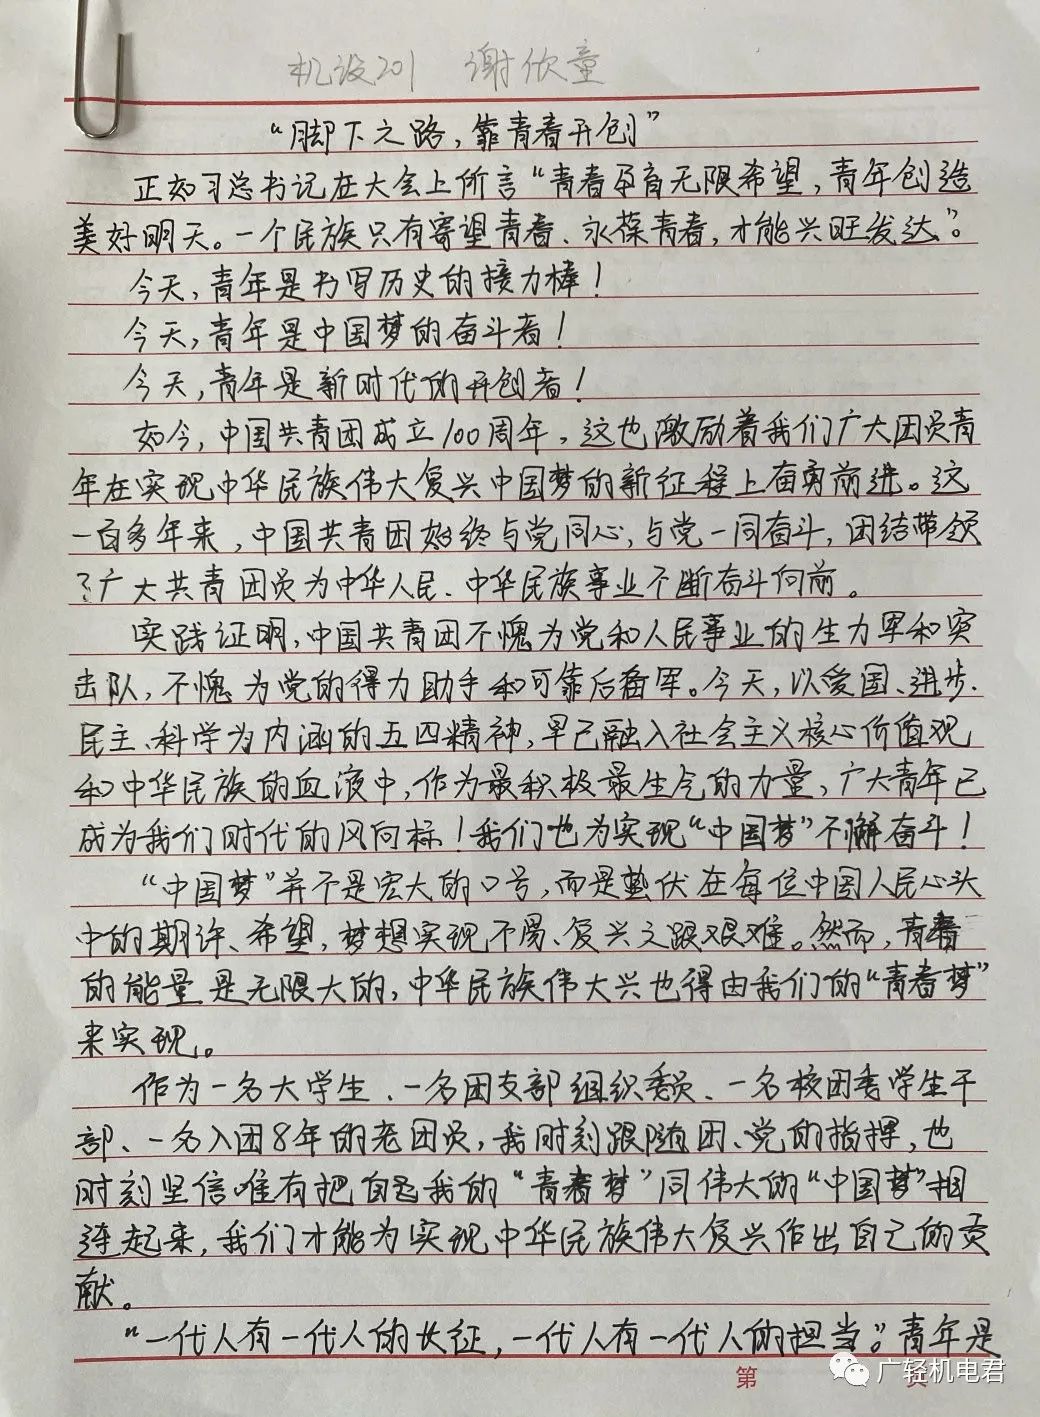 机设201 谢欣童
“脚下之路，靠青春开创”
正如习总书记在大会上所言“青春孕育无限希望，青年创造
美好明天。一个民族只有寄望青春、永葆青春，才能兴旺发达”。
今天，青年是书写历史的接力棒！
今天，青年是中国梦的奋斗者！
今天，青年是新时代的开创者！
如今，中国共青团成立100周年，这也激励着我们广大团员青
年在实现中华民族伟大复兴中国梦的新征程上奋勇前进。这
一百多年来，中国共青团始终与党同心，与党一同奋斗，团结带领
了广大共青团员为中华人民、中华民族事业不断奋斗向前。
实践证明，中国共青团不愧为党和人民事业的生力军和突
击队，不愧为党的得力助手和可靠后备军。今天，以爱国、进步、
民主、科学为内涵的五四精神，早已融入社会主义核心价值观
和中华民族的血液中，作为最积极最生气的力量，广大青年已
成为我们时代的风向标！我们也为实现“中国梦”不懈奋斗！
“中国梦”并不是宏大的口号，而是蛰伏在每位中国人民心头
中的期许、希望，梦想实现不易、复兴之路艰难。然而，青春
的能量是无限大的，中华民族伟大兴也得由我们的“青春梦”
来实现。
作为一名大学生、一名团支部组织委员、一名校团委学生干
部、一名入团8年的老团员，我时刻跟随团、党的指挥，也
时刻坚信唯有把自己我的“青春梦”同伟大的“中国梦”相
连起来，我们才能为实现中华民族伟大复兴作出自己的贡
献。
“一代人有一代人的长征，一代人有一代人的担当。”青年是
第 页
广轻机电君